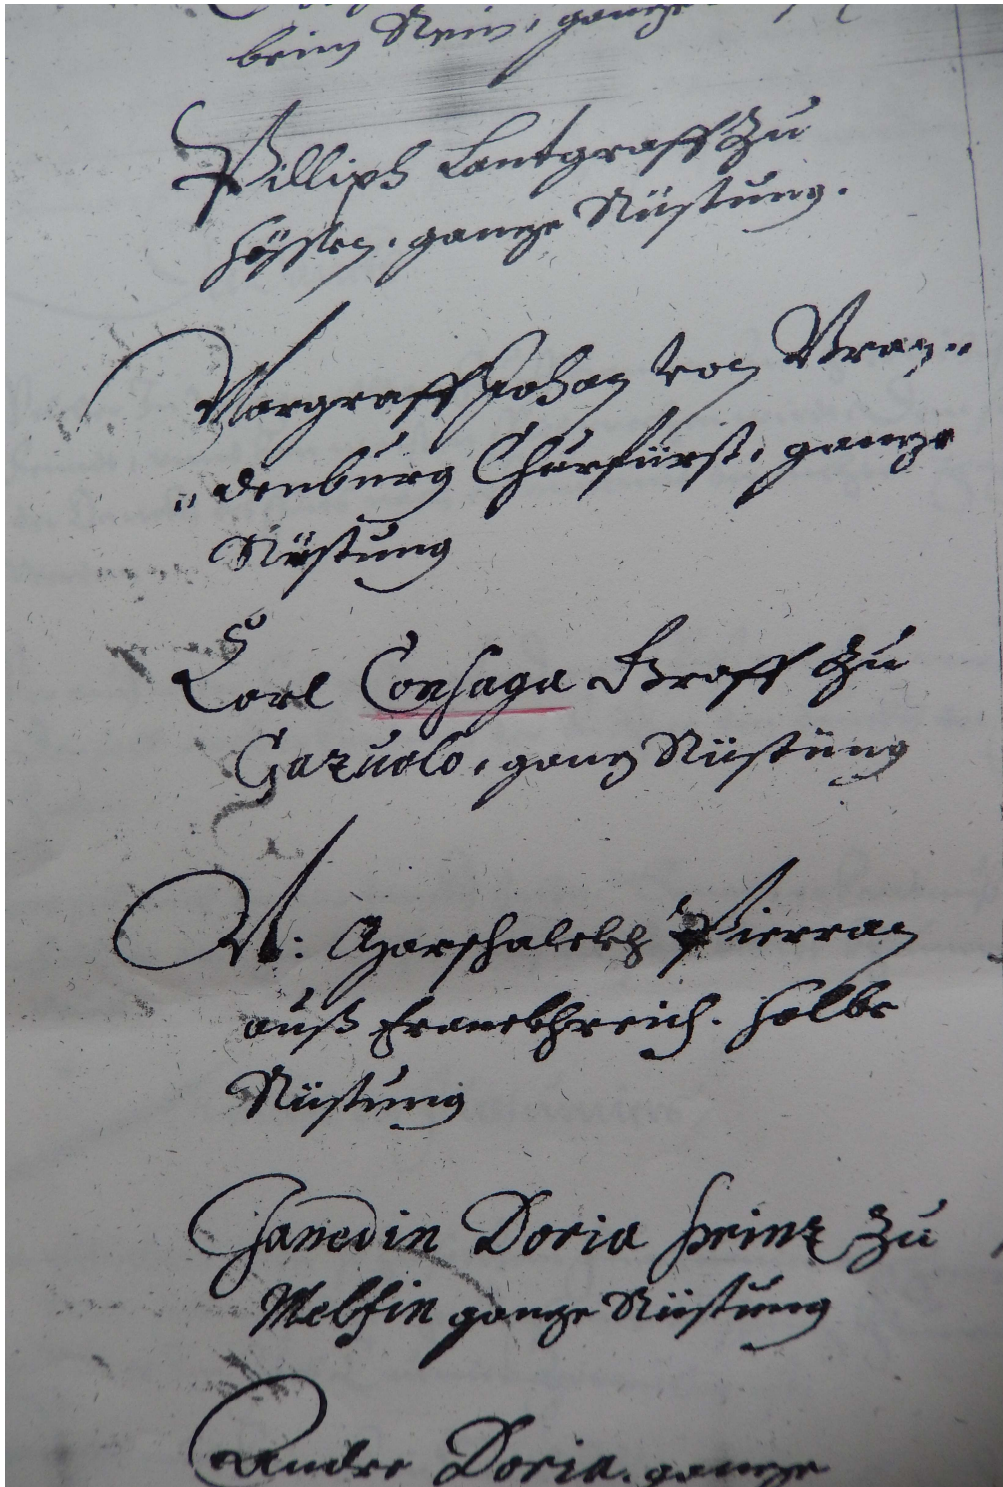 beim Rein, gantze
Pilliph Lantgraff zu
Hössen. gantze Rüstung.
Margraff Johan von Bran„
„denburg Churfürst, gantze
Rüstung
Carl Consaga Graff zu
Gazuolo, gantz Rüstüng
A: Marschalckh Pierran
auß Franckhreich. halbe
Rüstung
Janedin Doria Prinz zu
Melfin gantze Rüstung
Andre Doria. gantze